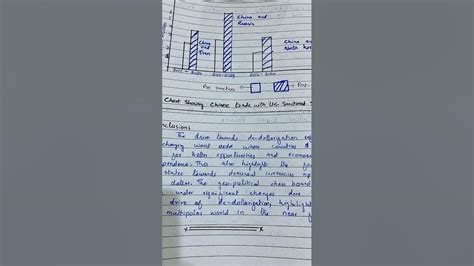 China and
Russia
China
and
Iran
China and
North Kor
Pre Sanction
Post-
Chart Showing Chinese trade with U.S. Sanctioned
clusions
The drive towards de-dollarization
changing world order where countries
for better opportunities and economi
pendence. This also highlights the
states towards dominant currencies
dollar. The geo-political chess board
under significant changes due
drive of de-dollarization, highlight
multipolar world in the near